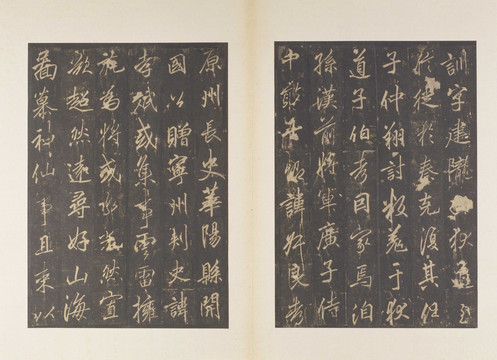 訓字建隴狄道
於秦克復其任
子仲翔討叛羌于狄
道子伯考因家焉洎
孫漢前將軍廣子侍
中諱叔良考
原州長史華陽縣開
國公贈寧州刺史諱
孝斌或集事雲雷擁
旄為將或然宣
欲超然遠尋好山海
圖慕神仙事且束以